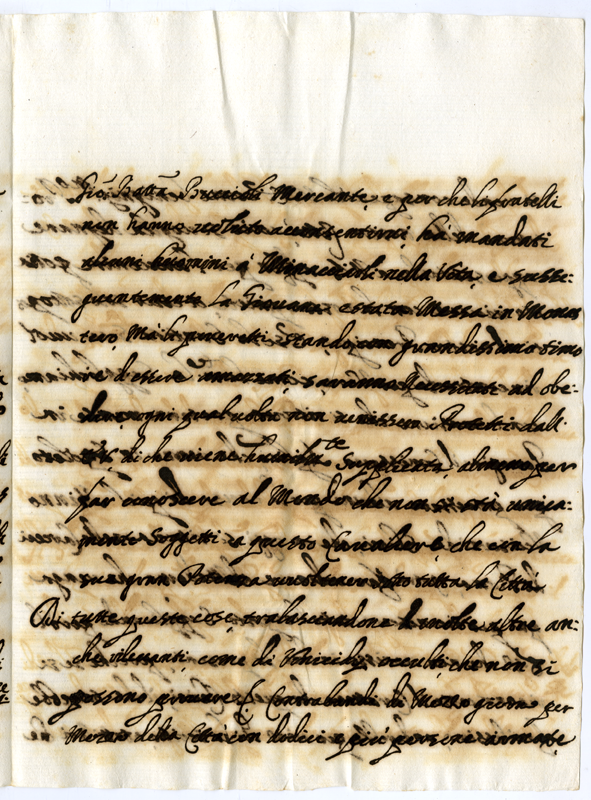 Gio: Batta Mercante, e per che li fratelli
non hanno voluto acconsentirvi hà mandati
alcuni huomini à Minacciarli nella Vita, e susse-
guentemente la Giovane estata Messa in Monas
tero, Mà li poveretti stando con grandissimo timo
d'essere amazzati saranno ad obe-
ogni qual volta non venissero Protetti dall'
di che viene humilmte Supplicata, almeno per
far conoscere al Mondo che non si stà unica-
mente Soggetti a questo Cavaliere che con la
sua gran Potenza sotto tutta la Città
Di tutte queste cose tralasciandone molte altre an-
che rilevanti come di Homicidij occulti che non si
possono provare Contrabandi di Mezzo giorno per
Mezzo della Città con dodici e più persone armate